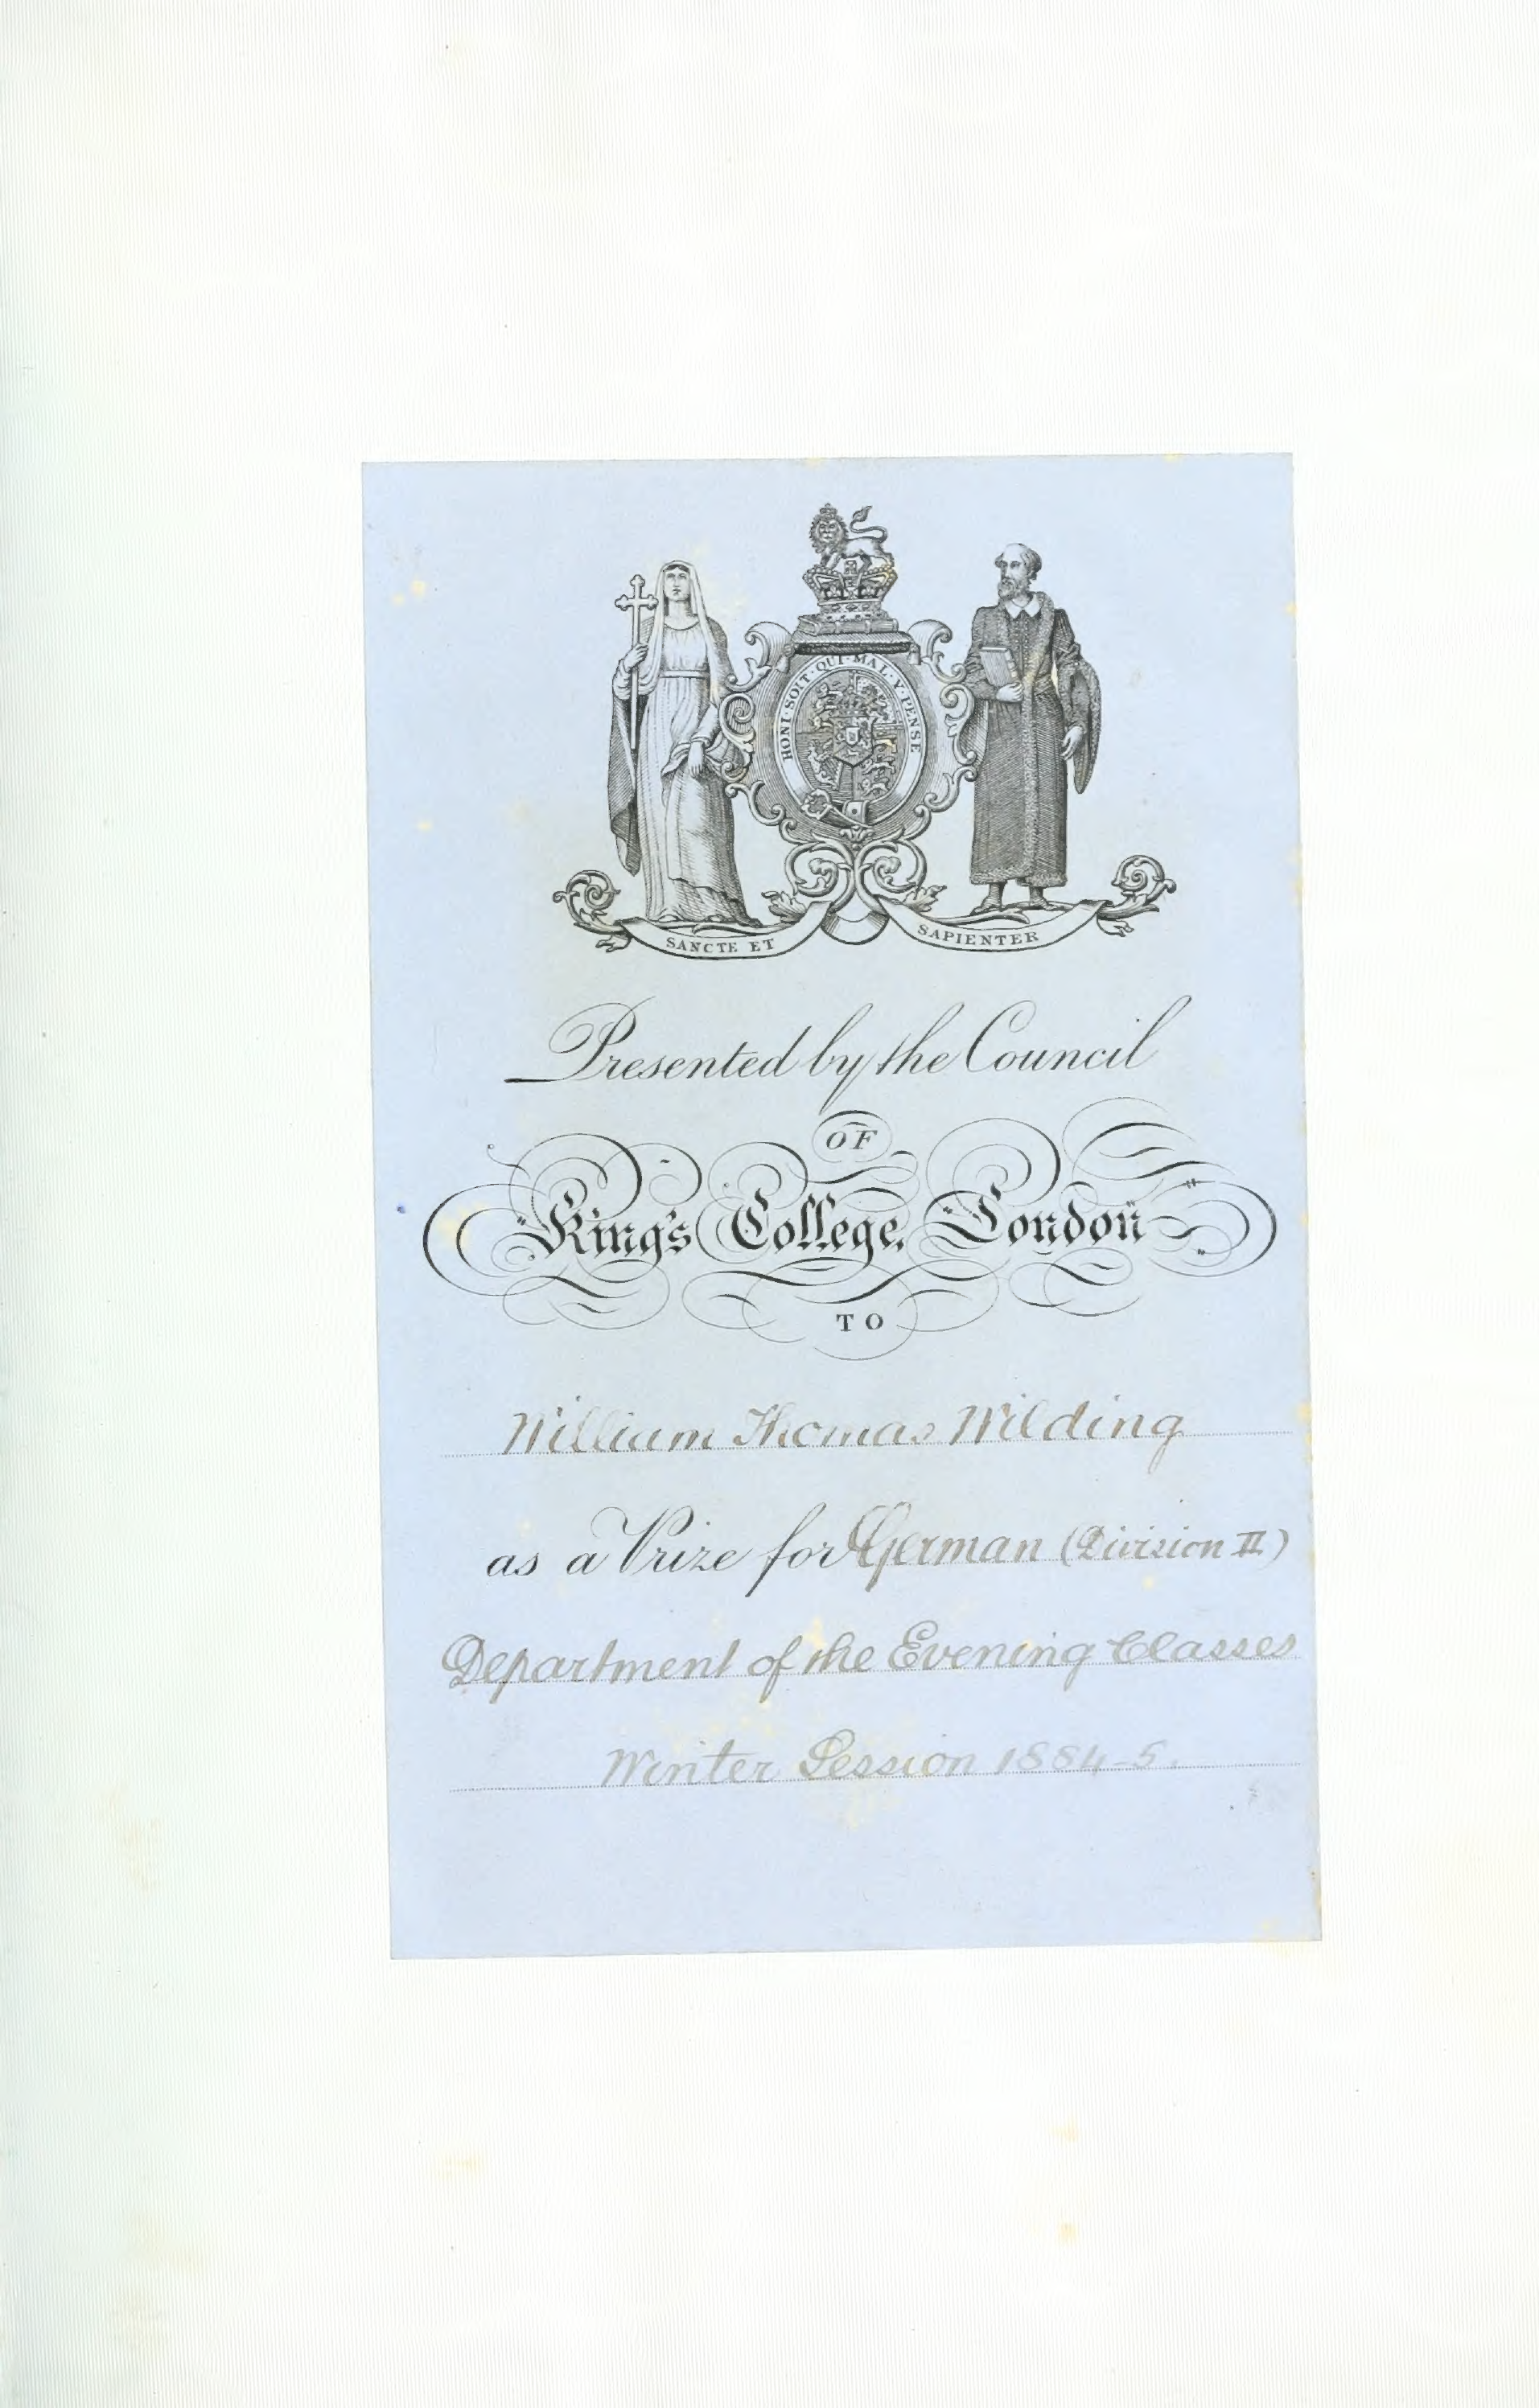 HONI · SOIT · QUI · MAL · Y · PENSE
SANCTE ET SAPIENTER
Presented by the Council
OF
King's College, London
TO
William Thomas Wilding
as a Prize for German (Division II)
Department of the Evening Classes
Winter Session 1884-5.